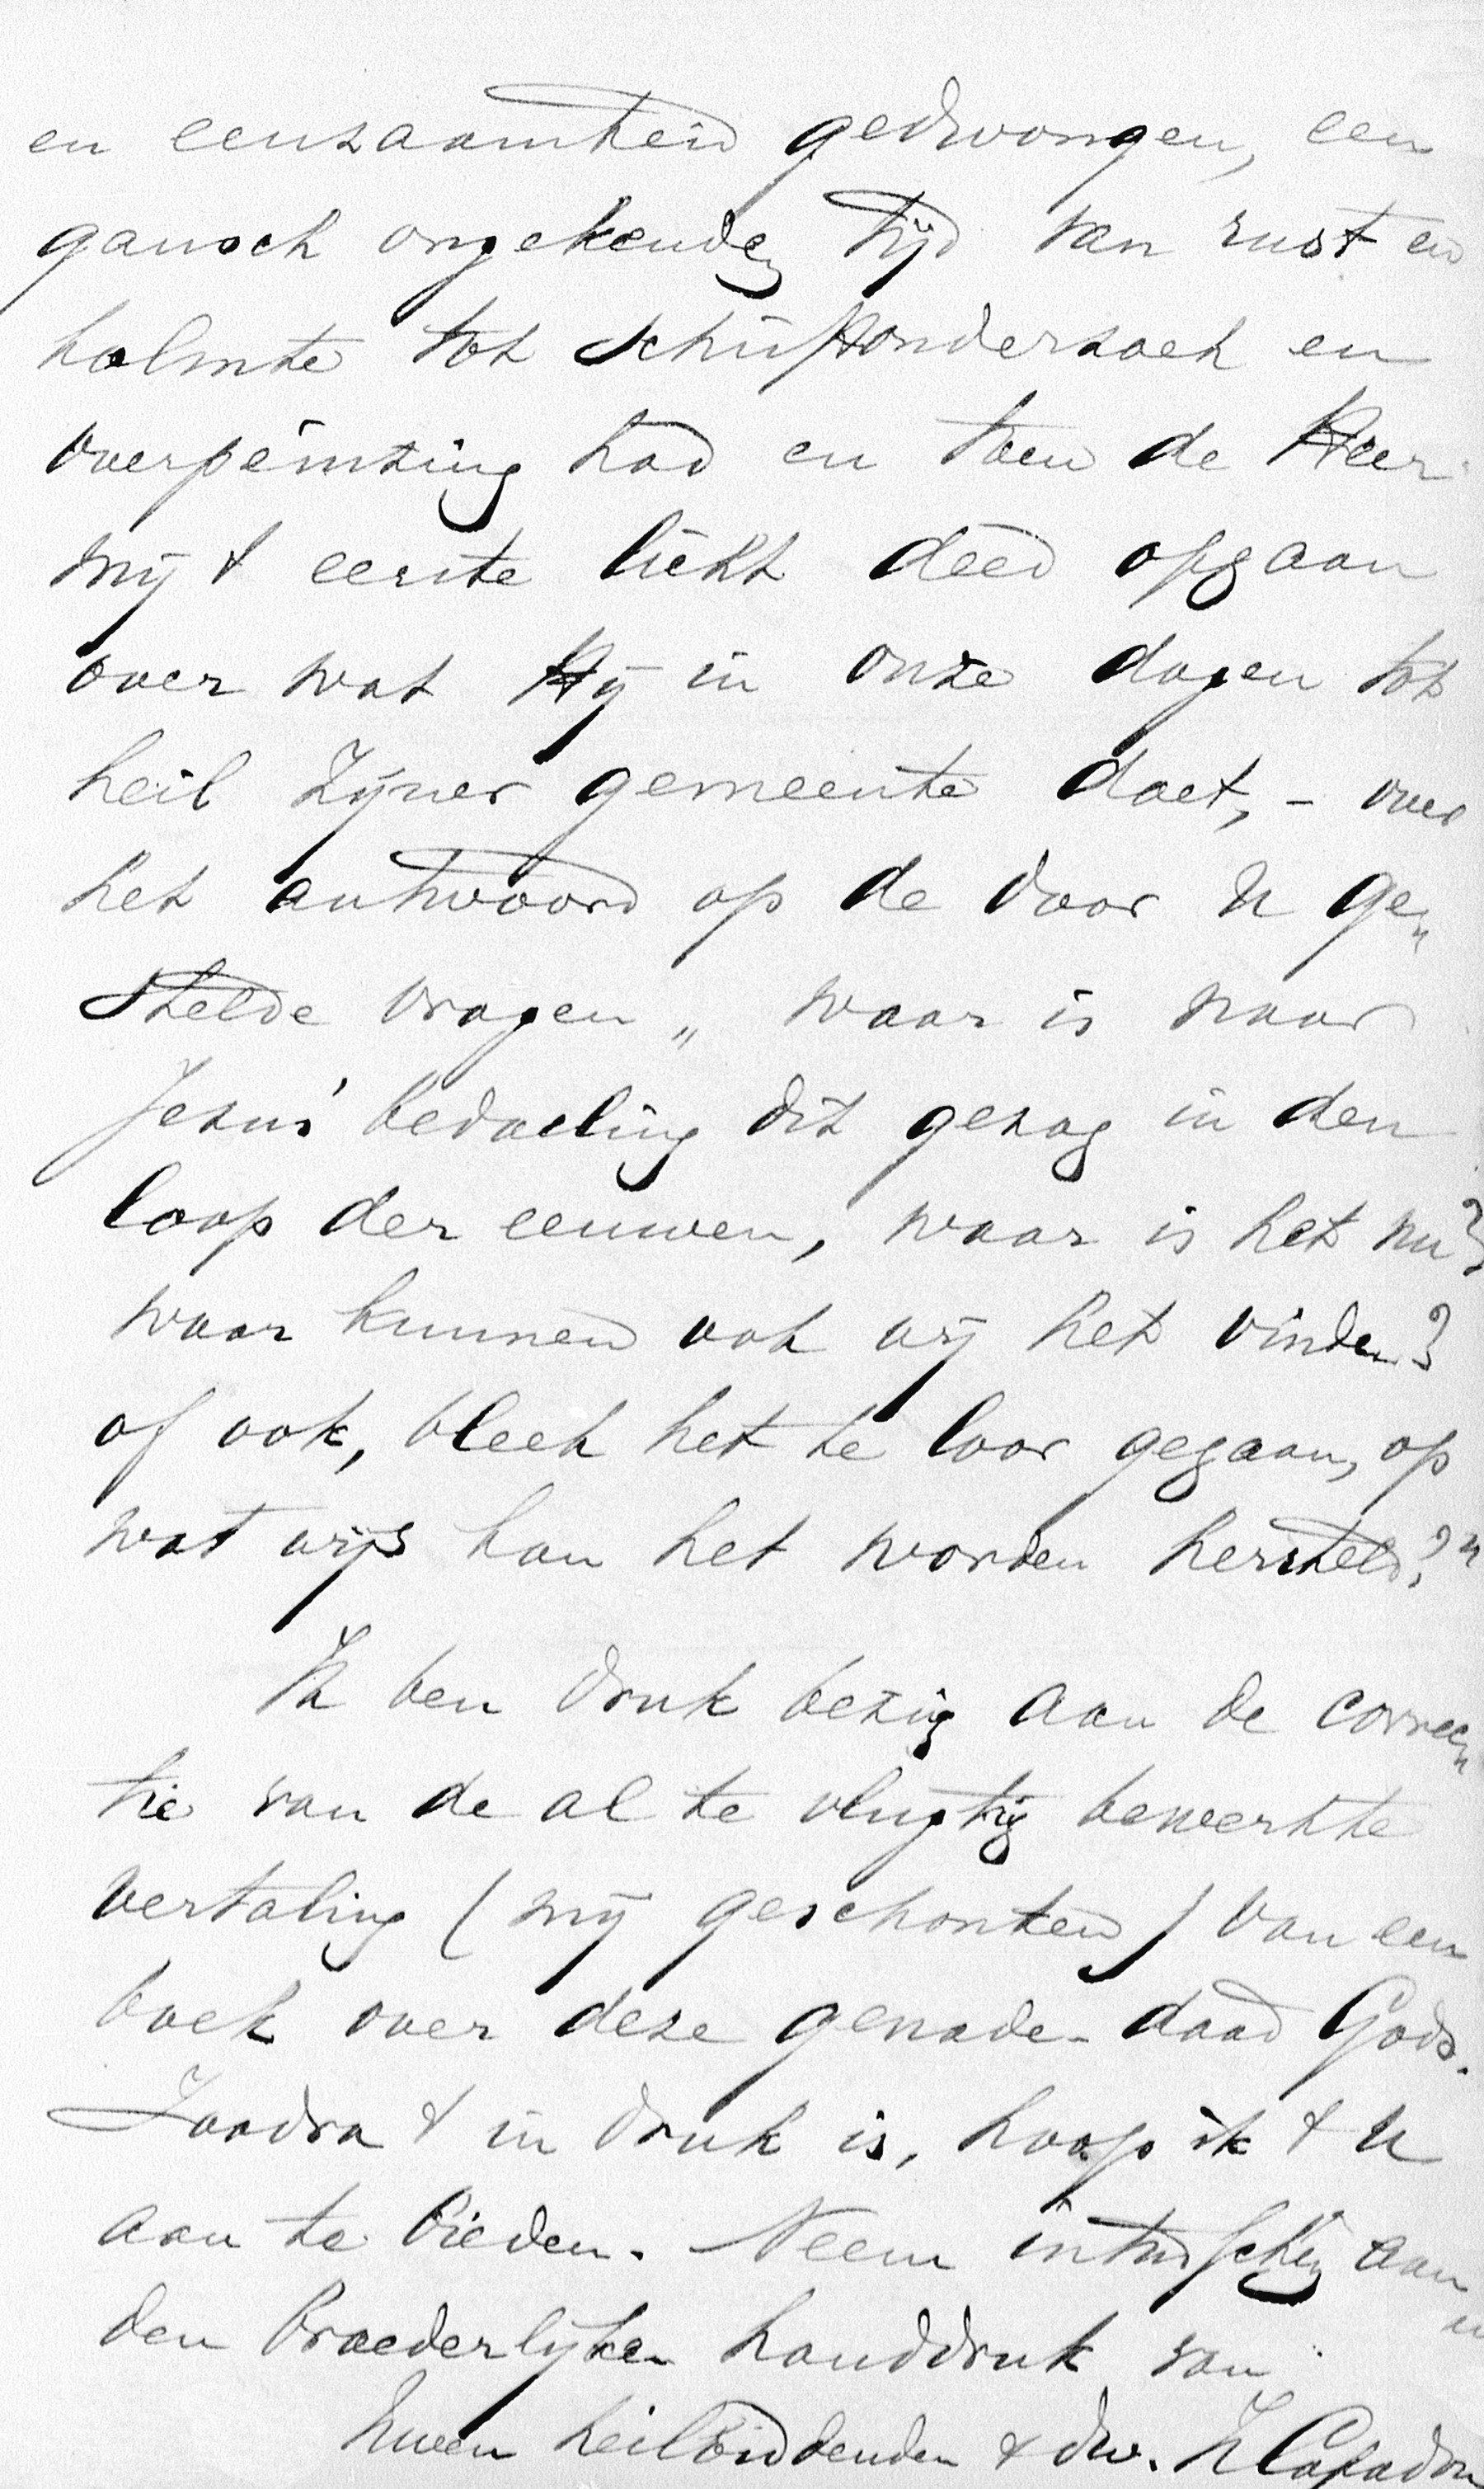 en eenzaamheid gedwongen, een
gansch ongekenden tijd van rust en
kalmte tot Schriftonderzoek en
overpeinzing had en toen de Heer
mij 't eerste licht deed opgaan
over wat Hij in onze dagen tot
heil Zijner gemeente doet, - over
het antwoord op de door U ge„
stelde vragen „ waar is naar
Jezus' bedoeling dit gezag in den
loop der eeuwen, waar is het nu?
waar kunnen ook wij het vinden?
of ook, bleek het te loor gegaan, op
wat wijs kan het worden hersteld?"
Ik ben druk bezig aan de correc„
tie van de al te vlugtig bewerkte
vertaling (mij geschonken) van een
boek over deze genade-daad Gods.
Zoodra 't in druk is, hoop ik 't U
aan te bieden. Neem intusschen aan
den broederlijken handdruk van
Uwen heilbiddenden & dw.